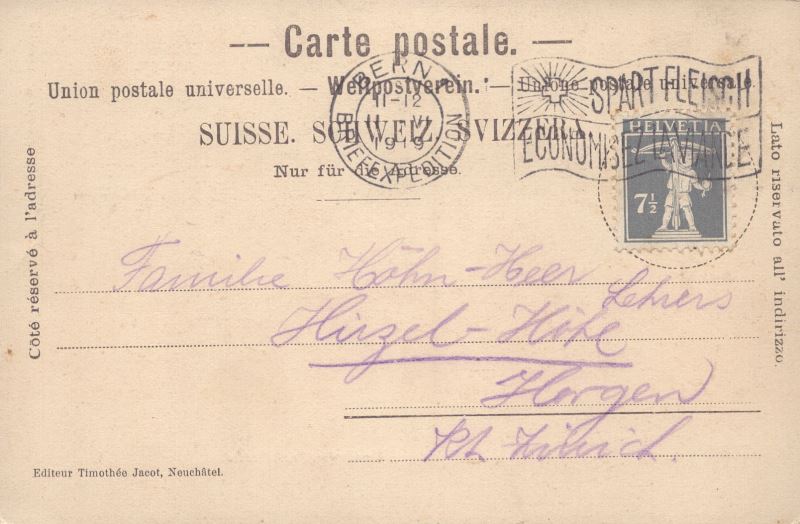 — Carte postale. —
Union postale universelle. — Weltpostverein. — Unione postale universale.
SUISSE. SCHWEIZ. SVIZZERA.
Nur für die Adresse.
Côté réservé à l'adresse
Lato riservato all' indirizzo.
BERN 1
11-12
11. VI.
1919
BRIEFEXPEDITION
SPART FLEISCH
ECONOMISEZ LA VIANDE
HELVETIA
7½
Familie Höhn-Heer
Lehrers
Hirzel-Höhe
Horgen
Kt. Zürich.
Editeur Timothée Jacot, Neuchâtel.